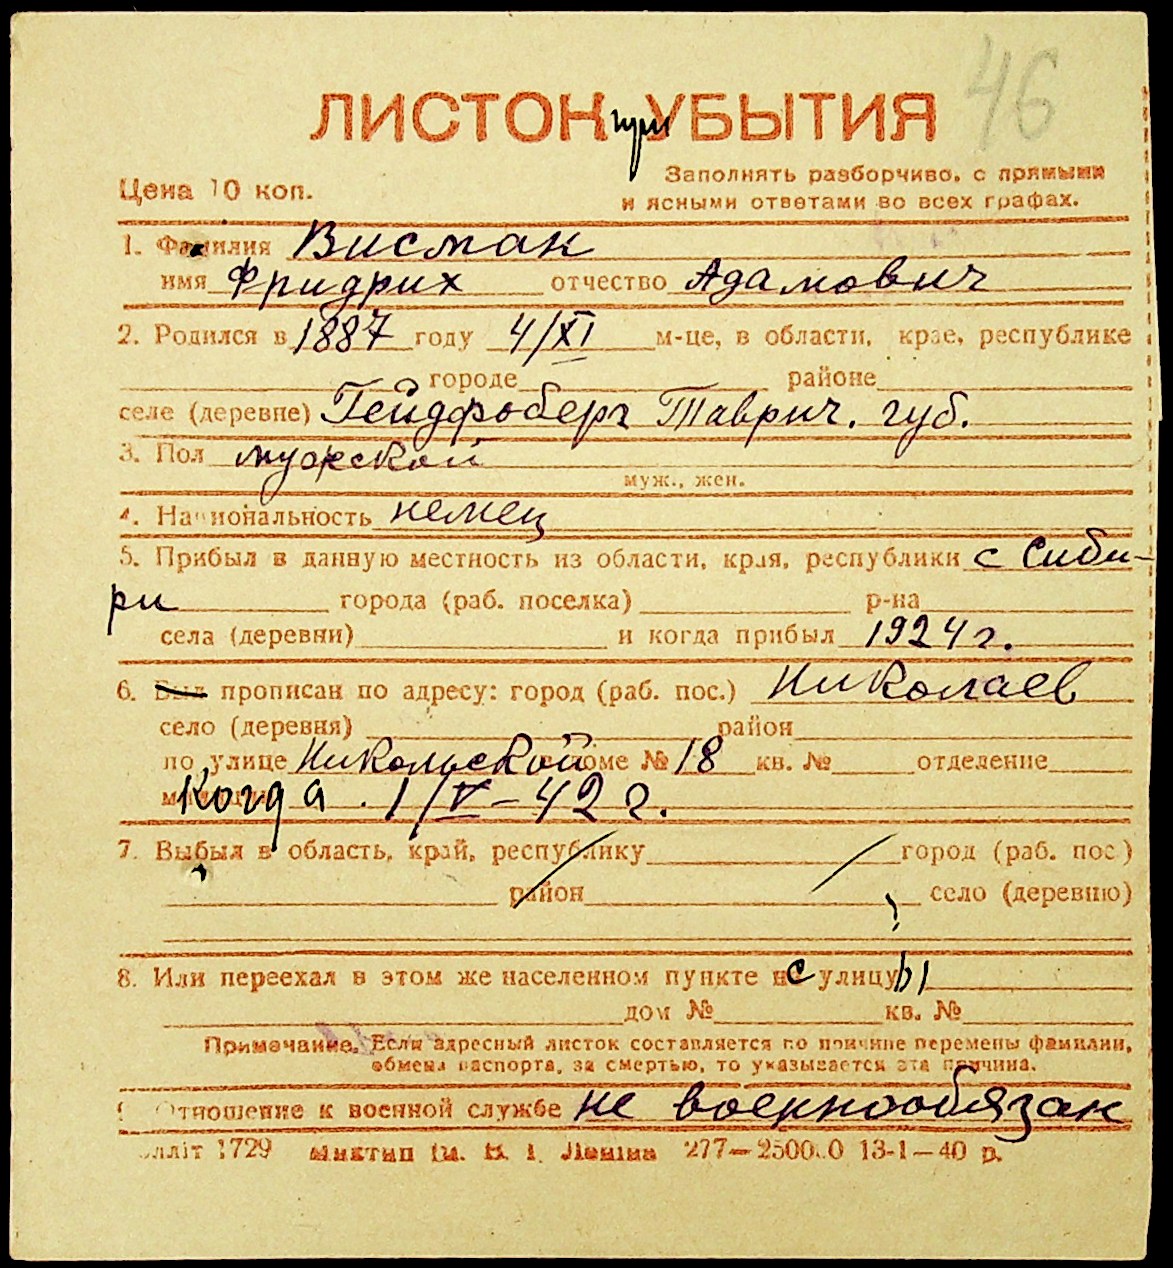 46
ЛИСТОК при УБЫТИЯ
Цена 10 коп.
Заполнять разборчиво, с прямыми
и ясными ответами во всех графах.
1. Фамилия Висман
имя Фридрих отчество Адамович
2. Родился в 1887 году 4/XI м-це, в области, крае, республике
городе районе
селе (деревне) Гейдфоберг Таврич. губ.
3. Пол мужской
муж., жен.
4. Национальность немец
5. Прибыл в данную местность из области, края, республики с Сиби-
ри города (раб. поселка) р-на
села (деревни) и когда прибыл 1924 г.
6. Был прописан по адресу: город (раб. пос.) Николаев
село (деревня) район
по улице Никольской доме № 18 кв. № отделение
когда. 1/V-42 г.
7. Выбыл в область, край, республику город (раб. пос.)
район село (деревню)
8. Или переехал в этом же населенном пункте с улицы
дом № кв. №
Примечание. Если адресный листок составляется по причине перемены фамилии,
обмена паспорта, за смертью, то указывается эта причина.
9. Отношение к военной службе не военнообязан
1729 277—2500.0 13-1—40 р.